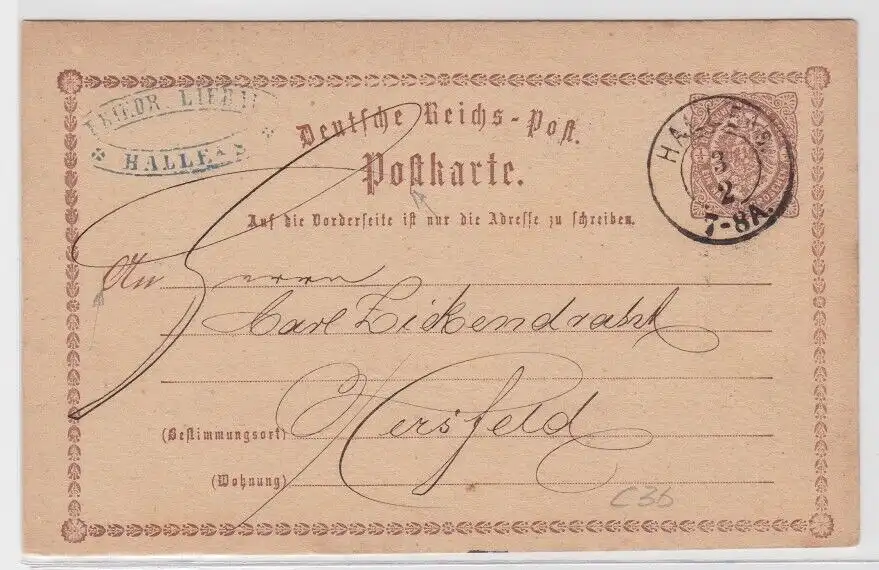 FRIEDR. LIEB
HALLE A/S
Deutsche Reichs-Post.
Postkarte.
Auf die Vorderseite ist nur die Adresse zu schreiben.
HALLE A/S.
3
2
7-8A.
An Herrn
Carl Zickendraht
(Bestimmungsort) Hersfeld
(Wohnung)
C3b